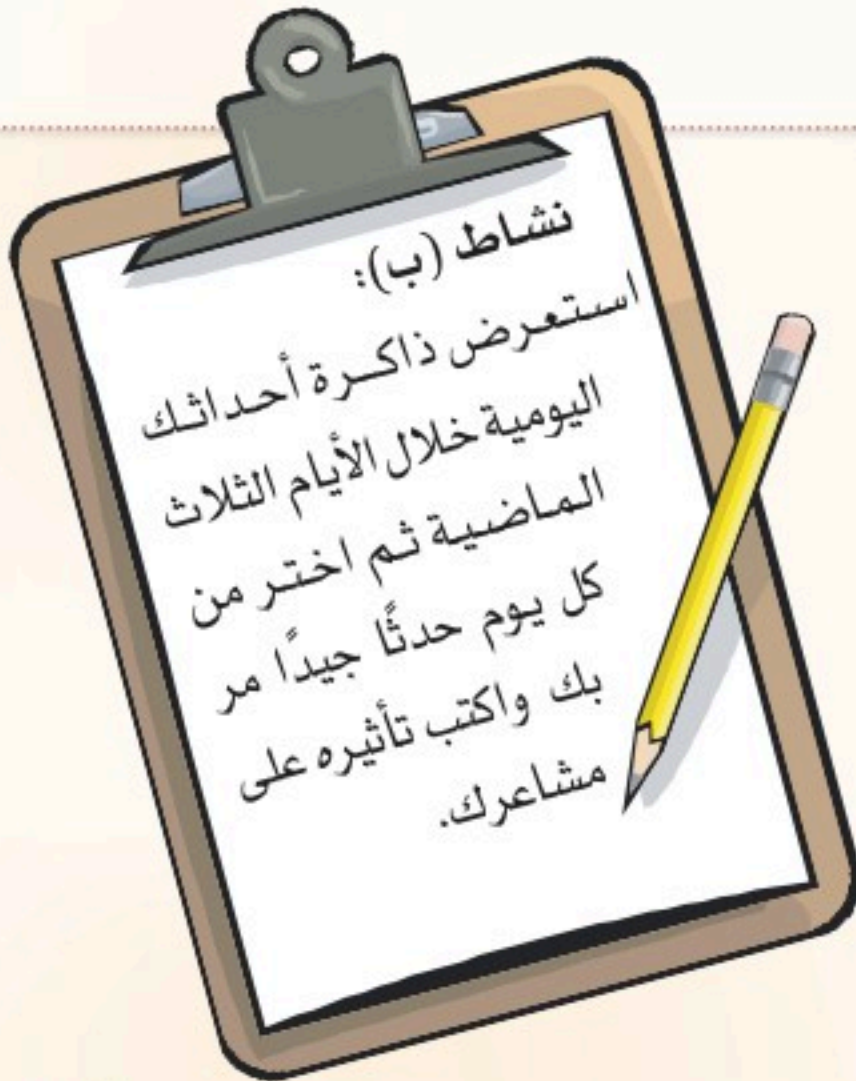 نشاط (ب):
استعرض ذاكرة أحداثك
اليومية خلال الأيام الثلاث
الماضية ثم اختر من
كل يوم حدثًا جيدًا مر
بك واكتب تأثيره على
مشاعرك.